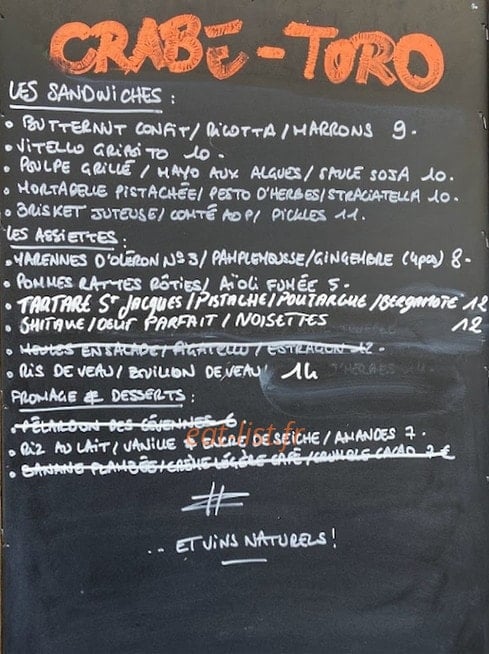 CRABE-TORO
LES SANDWICHES :
• BUTTERNUT CONFIT / RICOTTA / MARRONS 9.
• VITELLO GRIBITO 10.
• POULPE GRILLÉ / MAYO AUX ALGUES / SAUCE SOJA 10.
• MORTADELLE PISTACHÉE / PESTO D'HERBES / STRACIATELLA 10.
• BRISKET JUTEUSE / COMTÉ AOP / PICKLES 11.
LES ASSIETTES :
• VARENNES D'OLÉRON N°3 / PAMPLEMOUSSE / GINGEMBRE (4pcs) 8.
• POMMES RATTES RÔTIES / AÏOLI FUMÉE 5.
• TARTARE ST JACQUES / PISTACHE / POUTARGUE / BERGAMOTE 12
• SHITAKE / OEUF PARFAIT / NOISETTES 12
• MOULES EN SALADE / FIGATELLU / ESTRAGON 12.
• RIS DE VEAU / BOUILLON DE VEAU 14
FROMAGE & DESSERTS :
• PÉLARDON DES CÉVENNES 6
eat-list.fr
• RIZ AU LAIT / VANILLE & ENCRE DE SEICHE / AMANDES 7.
• BANANE FLAMBÉE / CRÈME LÉGÈRE CAFÉ / CRUMBLE CACAO 7€
#
... ET VINS NATURELS !